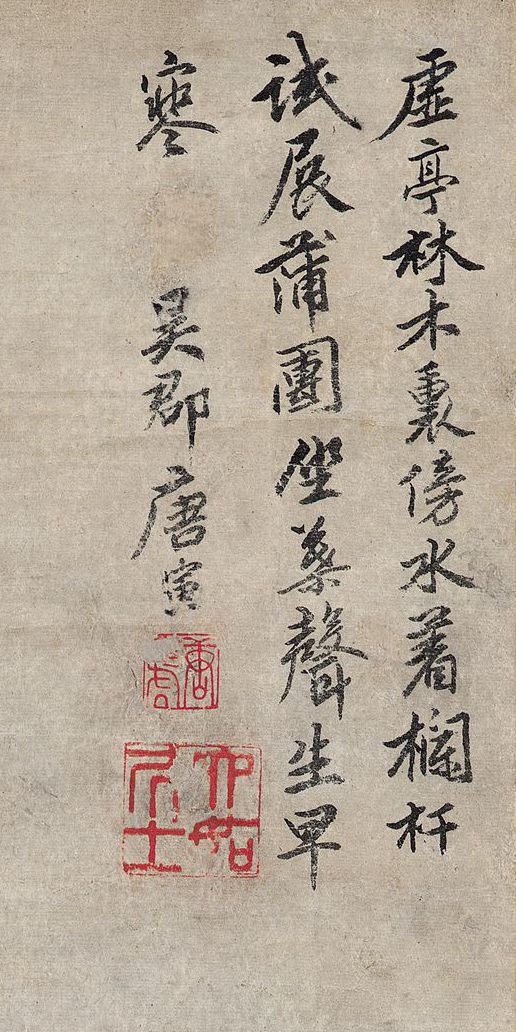 虛亭林木裏傍水着欄杆
試展蒲團坐葉聲生早
寒 吳郡唐寅
唐寅
六如居士